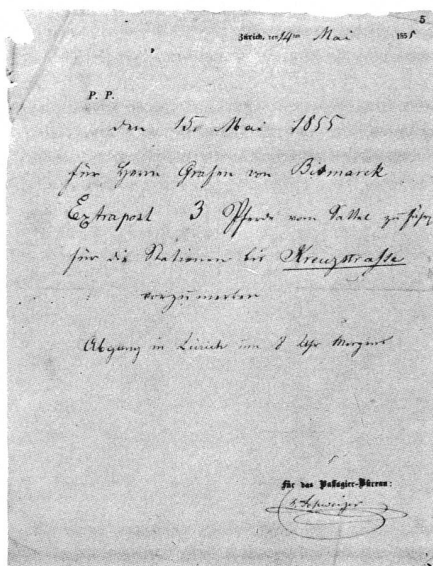 5
Zürich, den 14ten Mai 1855
P. P.
den 15. Mai 1855
für Herrn Grafen von Bismarck
Extrapost 3 Pferde vom Sattel zu
für die Stationen bis Kreuzstrasse
vorzumerken
Abgang in Zürich um 8 Uhr Morgens
Für das Passagier-Büreau:
Schweizer